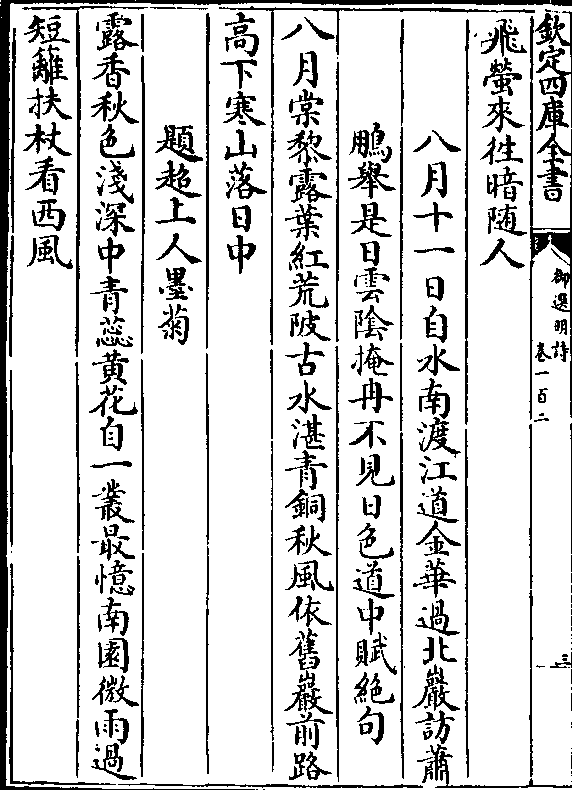 欽定四庫全書
御選明詩
卷一百二
三
飛螢來徃暗随人
八月十一日自水南渡江道金華過北巖訪蕭
鵬舉是日雲陰掩冉不見日色道中賦絶句
八月棠黎露葉紅荒陂古水湛青銅秋風依舊巖前路
高下寒山落日中
題超上人墨菊
露香秋色淺深中青蕊黄花自一叢最憶南園微雨過
短籬扶杖看西風